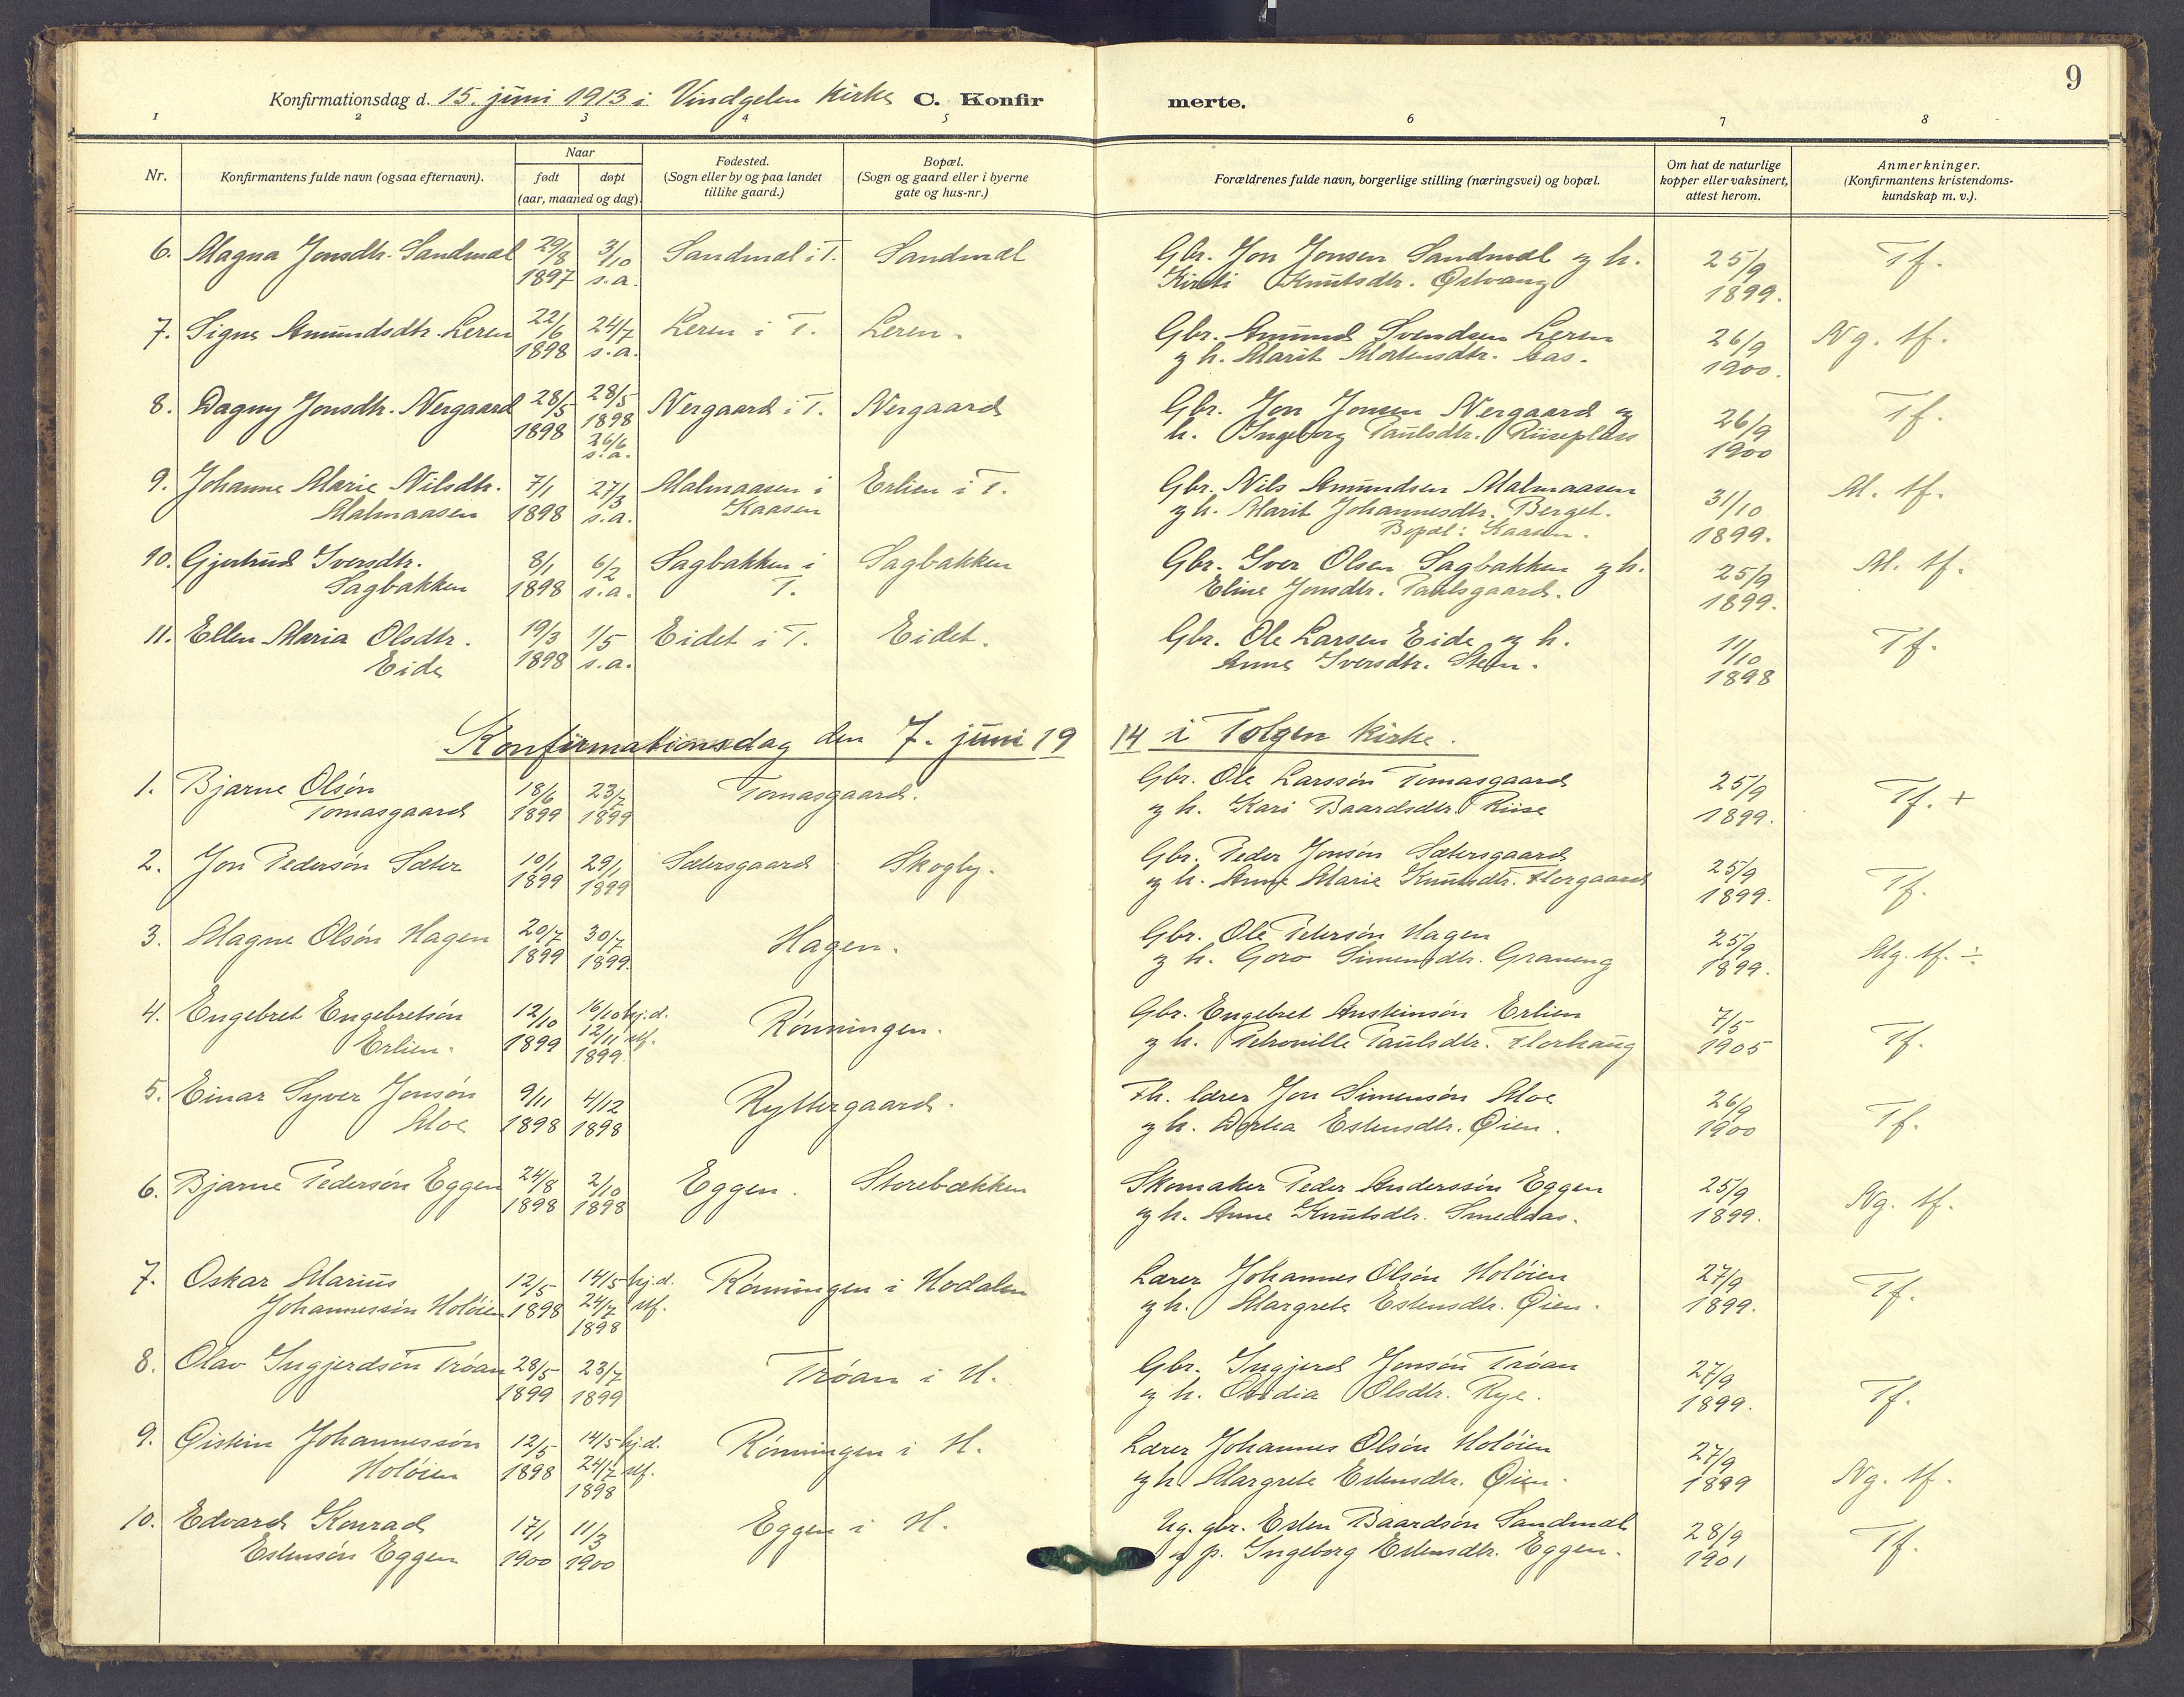 9
Konfirmationsdag d. 15. juni 1913 i Vindgelen kirke C. Konfirmerte.
1 2 3 4 5 6 7 8
Nr.
Konfirmantens fulde navn (ogsaa efternavn).
Naar
født
døpt
(aar, maaned og dag)
Fødested.
(Sogn eller by og paa landet
tillike gaard.)
Bopæl.
(Sogn og gaard eller i byerne
gate og hus-nr.)
Forældrenes fulde navn, borgerlige stilling (næringsvei) og bopæl.
Om hat de naturlige
kopper eller vaksinert,
attest herom.
Anmerkninger.
(Konfirmantens kristendoms-
kundskap m. v.).
6. Magna Jonsdtr. Sandmæl 29/8 3/10 Sandmæl i T. Sandmæl Gbr. Jon Jonsen Sandmæl og h. 25/9 Tf.
1897 s.a. Kirsti Knutsdtr. Østvang 1899.
7. Signe Amundsdtr. Leren 22/6 24/7 Leren i T. Leren. Gbr. Amund Svendsen Leren 26/9 Ng. tf.
1898 s.a. og h. Marit Mortensdtr. Aas. 1900.
8. Dagny Jonsdtr. Nergaard 28/5 28/5 Nergaard i T. Nergaard Gbr. Jon Jonsen Nergaard og 26/9 Tf.
1898 1898 h. Ingeborg Paulsdtr. Riiseplass 1900
26/6
s.a.
9. Johanne Marie Nilsdtr. 7/1 27/3 Malmaasen i Erlien i T. Gbr. Nils Amundsen Malmaasen 31/10 M. tf.
Malmaasen 1898 s.a. Kaasen og h. Marit Johannesdtr. Berget. 1899.
Bopæl: Kaasen.
10. Gjertrud Iversdtr. 8/1 6/2 Sagbakken i Sagbakken Gbr. Iver Olsen Sagbakken og h. 25/9 M. tf.
Sagbakken 1898 s.a. T. Eline Jonsdtr. Paulsgaard. 1899.
11. Ellen Maria Olsdtr. 19/3 1/5 Eidet i T. Eidet. Gbr. Ole Larsen Eide og h. 11/10 Tf.
Eide 1898 s.a. Anne Iversdtr. Steen. 1898
Konfirmationsdag den 7. juni 1914 i Tolgen kirke.
1. Bjarne Olsón 18/6 23/7 Tomasgaard. Gbr. Ole Larssón Tomasgaard 25/9 Tf. +
Tomasgaard 1899 1899 og h. Kari Baardsdtr. Riise 1899.
2. Jon Pedersón Sæter 10/1 29/1 Sætersgaard Skogly. Gbr. Peder Jonsón Sætersgaard 25/9 Tf.
1899 1899 og h. Anne Marie Knutsdtr. Florgaard 1899.
3. Magne Olsón Hagen 20/7 30/7 Hagen. Gbr. Ole Petersón Hagen 25/9 Mg. tf. ÷
1899 1899. og h. Goro Simensdtr. Graneng 1899.
4. Engebret Engebretsón 12/10 16/10 hj.d. Rónningen. Gbr. Engebret Austeinsón Erlien 7/5 Tf.
Erlien. 1899 12/11 stf. og h. Petronille Paulsdtr. Florhaug 1905
1899.
5. Einar Syver Jonsón 9/11 4/12 Ryttergaard. Fh. lærer Jon Simensón Moe 26/9 Tf.
Moe 1898 1898 og h. Dortea Estensdtr. Øien. 1900
6. Bjarne Pedersón Eggen 24/8 2/10 Eggen. Storebækken Skomaker Peder Anderssón Eggen 25/9 Ng. tf.
1898 1898 og h. Anne Knutsdtr. Smedaas. 1899.
7. Oskar Marius 12/5 14/5 hj.d. Rónningen i Hodalen Lærer Johannes Olsón Holóien 27/9 Tf.
Johannessón Holóien 1898 24/7 stf. og h. Margrete Estensdtr. Øien. 1899.
1898
8. Olav Ingjerdsón Tróan 28/5 23/7 Tróan i H. Gbr. Ingjerd Jonsón Tróan 27/9 Tf.
1899 1899 og h. Ovidia Olsdtr. Rye. 1899.
9. Øistein Johannessón 12/5 14/5 hj.d. Rónningen i H. Lærer Johannes Olsón Holóien 27/9 Ng. tf.
Holóien 1898 24/7 stf. og h. Margrete Estensdtr. Øien. 1899
1898
10. Edvard Konrad 17/1 11/3 Eggen i H. Ug. gbr. Esten Baardsón Sandmæl 28/9 Tf.
Estensón Eggen 1900 1900 og p. Ingeborg Estensdtr. Eggen. 1901